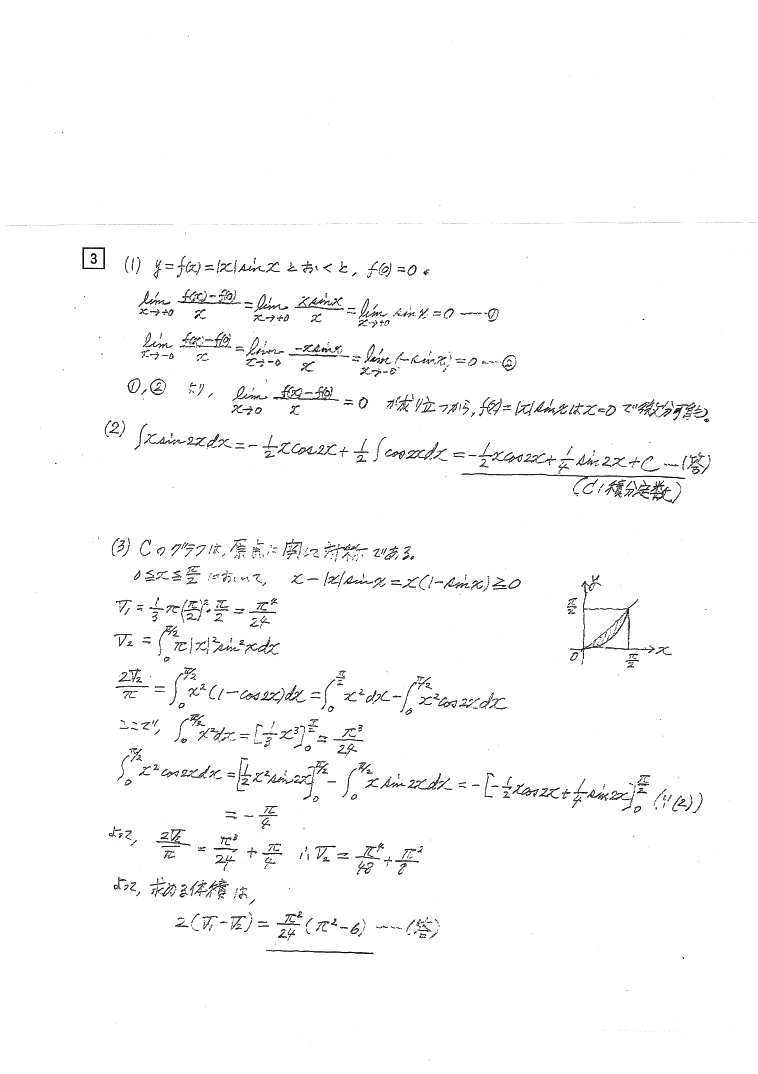 3
(1) y=f(x)=|x|sinxとおくと, f(0)=0.
lim_{x→+0} (f(x)-f(0))/x = lim_{x→+0} (x sinx)/x = lim_{x→+0} sinx = 0 ――①
lim_{x→-0} (f(x)-f(0))/x = lim_{x→-0} (-x sinx)/x = lim_{x→-0} (-sinx) = 0 ――②
①,② より, lim_{x→0} (f(x)-f(0))/x = 0 が成り立つから, f(x)=|x|sinxはx=0で微分可能.
(2) ∫x sin2x dx = -1/2 x cos2x + 1/2 ∫cos2x dx = -1/2 x cos2x + 1/4 sin2x + C ―(答)
(C:積分定数)
(3) Cのグラフは, 原点に関して対称である.
0≦x≦π/2 において, x-|x|sinx = x(1-sinx)≧0
V₁ = 1/3 π(π/2)²・π/2 = π⁴/24
V₂ = ∫_0^{π/2} π|x|²sin²x dx
y
π/2
O
π/2
x
2V₂/π = ∫_0^{π/2} x²(1-cos2x)dx = ∫_0^{π/2} x²dx - ∫_0^{π/2} x²cos2x dx
ここで, ∫_0^{π/2} x²dx = [1/3 x³]_0^{π/2} = π³/24
∫_0^{π/2} x²cos2x dx = [1/2 x²sin2x]_0^{π/2} - ∫_0^{π/2} x sin2x dx = -[-1/2 x cos2x + 1/4 sin2x]_0^{π/2} (∵(2))
= -π/4
よって, 2V₂/π = π³/24 + π/4 ∴V₂ = π⁴/48 + π²/8
よって, 求める体積は,
2(V₁-V₂) = π²/24 (π²-6) ――(答)